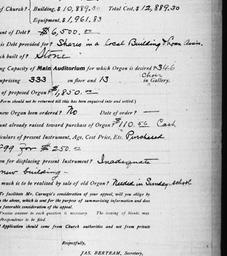 of Church? Building, $10,889.30 Total Cost, $12,889.30
Equipment, $1,961.83
unt of Debt? $6,500.—
is Debt provided for? Shares in a Local Building & Loan Assn.
ch built of? Stone
g Capacity of Main Auditorium for which Organ is desired? 346
mprising 333 on floor and 13 Choir in Gallery.
of proposed Organ? $1,850.—
Form should not be returned till this has been enquired into and settled.)
new Organ been ordered? No Date of order? —
unt already raised toward purchase of Organ? $110.50 Cash
iculars of present Instrument, Age, Cost Price, Etc. Purchased
1899 For $250.00
on for displacing present Instrument? Inadequate
new building—
much is to be realized by sale of old Organ? Needed in Sunday school
To facilitate Mr. Carnegie's consideration of your appeal, will you oblige by
in the above, which is and for the purpose of summarizing information and does
a favorable consideration of the appeal.
Precise answer to each question is necessary. The issuing of blanks may
respondence to be filed.
Application should come from Church authorities and not from private
Respectfully,
JAS. BERTRAM, Secretary,